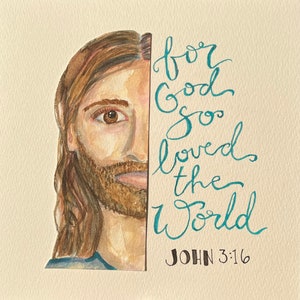 for
God
so
loved
the
World
JOHN 3:16